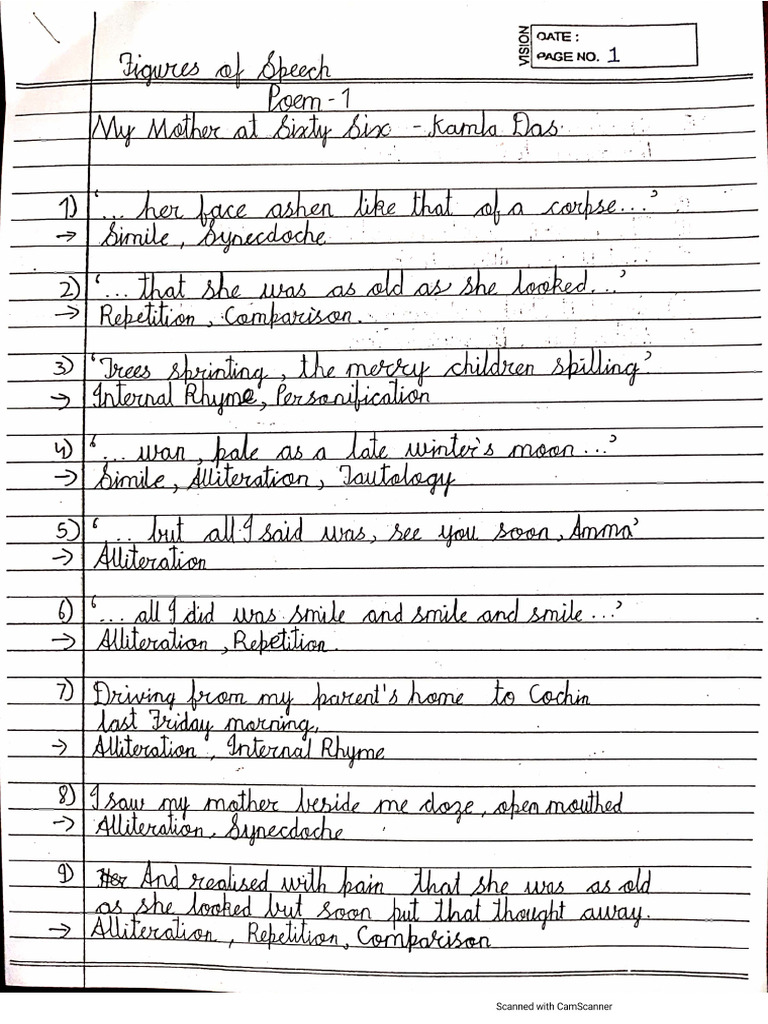 VISION
DATE :
PAGE NO. 1
Figures of Speech
Poem - 1
My Mother at Sixty Six - Kamla Das.
1) '... her face ashen like that of a corpse...'
→ Simile, Synecdoche
2) '... that she was as old as she looked...'
→ Repetition, Comparison.
3) 'Trees sprinting, the merry children spilling'
→ Internal Rhyme, Personification
4) '... wan, pale as a late winter's moon...'
→ Simile, Alliteration, Tautology
5) '... but all I said was, see you soon, Amma'
→ Alliteration
6) '... all I did was smile and smile and smile...'
→ Alliteration, Repetition.
7) Driving from my parent's home to Cochin
last Friday morning,
→ Alliteration, Internal Rhyme
8) I saw my mother beside me doze, open mouthed
→ Alliteration, Synecdoche
9) And realised with pain that she was as old
as she looked but soon put that thought away.
→ Alliteration, Repetition, Comparison
Scanned with CamScanner